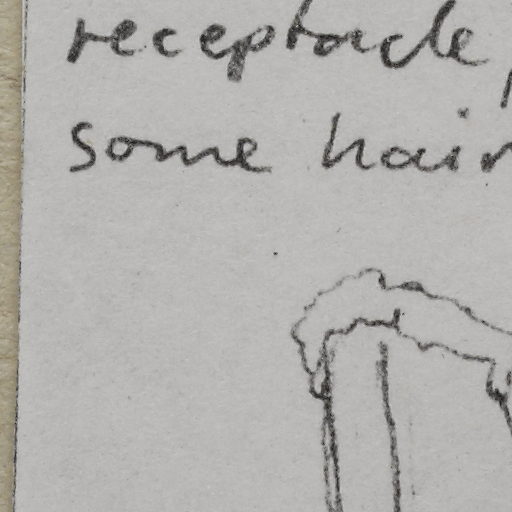 receptacle,
some hair